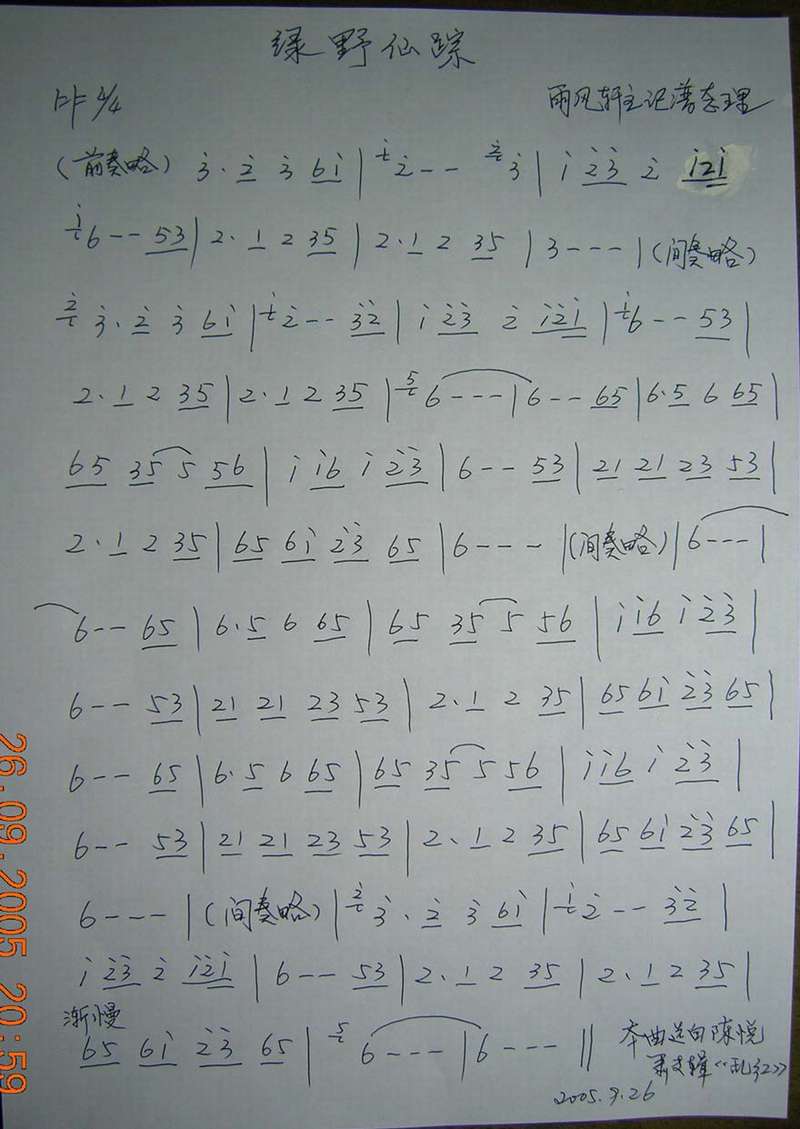 绿野仙踪
1=F 4/4 雨风轩主记谱整理
(前奏略) 3̇·2̇ 3̇ 61̇ | 1̇ 2̇-- 2̇ 3̇ | 1̇ 2̇3̇ 2̇ 1̇21̇
1̇ 6--53 | 2·1 2 35 | 2·1 2 35 | 3--- | (间奏略)
2̇ 3̇·2̇ 3̇ 61̇ | 1̇ 2̇--3̇2̇ | 1̇ 2̇3̇ 2̇ 1̇2̇1̇ | 1̇ 6--53 |
2·1 2 35 | 2·1 2 35 | 5 6--- | 6--65 | 6·5 6 65 |
65 35 5 56 | 1̇ 1̇6 1̇ 2̇3̇ | 6--53 | 21 21 23 53 |
2·1 2 35 | 65 61̇ 2̇3̇ 65 | 6--- | (间奏略) | 6--- |
6--65 | 6·5 6 65 | 65 35 5 56 | 1̇ 1̇6 1̇ 2̇3̇ |
6--53 | 21 21 23 53 | 2·1 2 35 | 65 61̇ 2̇3̇ 65 |
6---65 | 6·5 6 65 | 65 35 5 56 | 1̇ 1̇6 1̇ 2̇3̇ |
6--53 | 21 21 23 53 | 2·1 2 35 | 65 61̇ 2̇3̇ 65 |
6--- | (间奏略) | 2̇ 3̇·2̇ 3̇ 61̇ | 1̇ 2̇--3̇2̇ |
1̇ 2̇3̇ 2̇ 1̇2̇1̇ | 6--53 | 2·1 2 35 | 2·1 2 35 |
渐慢
65 61̇ 2̇3̇ 65 | 5 6--- | 6--- ‖ 本曲选自陈悦
萧专辑《乱红》
2005.9.26
26.09.2005 20:59